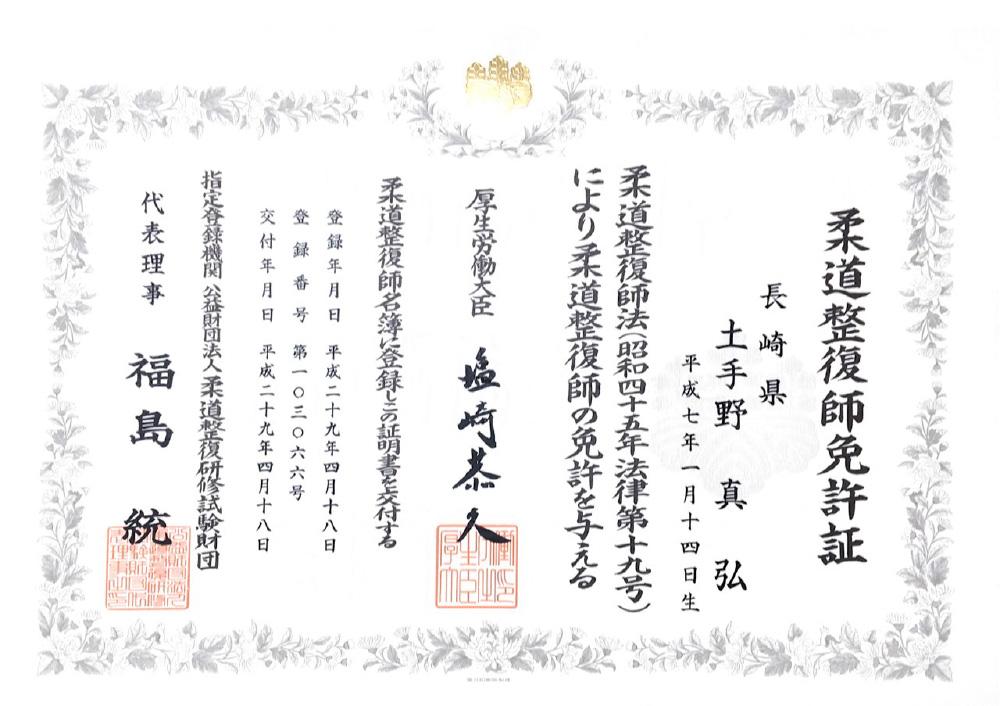 柔道整復師免許証
長崎県
土手野 真 弘
平成七年一月十四日生
柔道整復師法(昭和四十五年法律第十九号)
により柔道整復師の免許を与える
厚生労働大臣 塩崎恭久
柔道整復師名簿に登録しこの証明書を交付する
登録年月日 平成二十九年四月十八日
登録番号 第一〇三〇六六号
交付年月日 平成二十九年四月十八日
指定登録機関 公益財団法人柔道整復研修試験財団
代表理事 福島 統